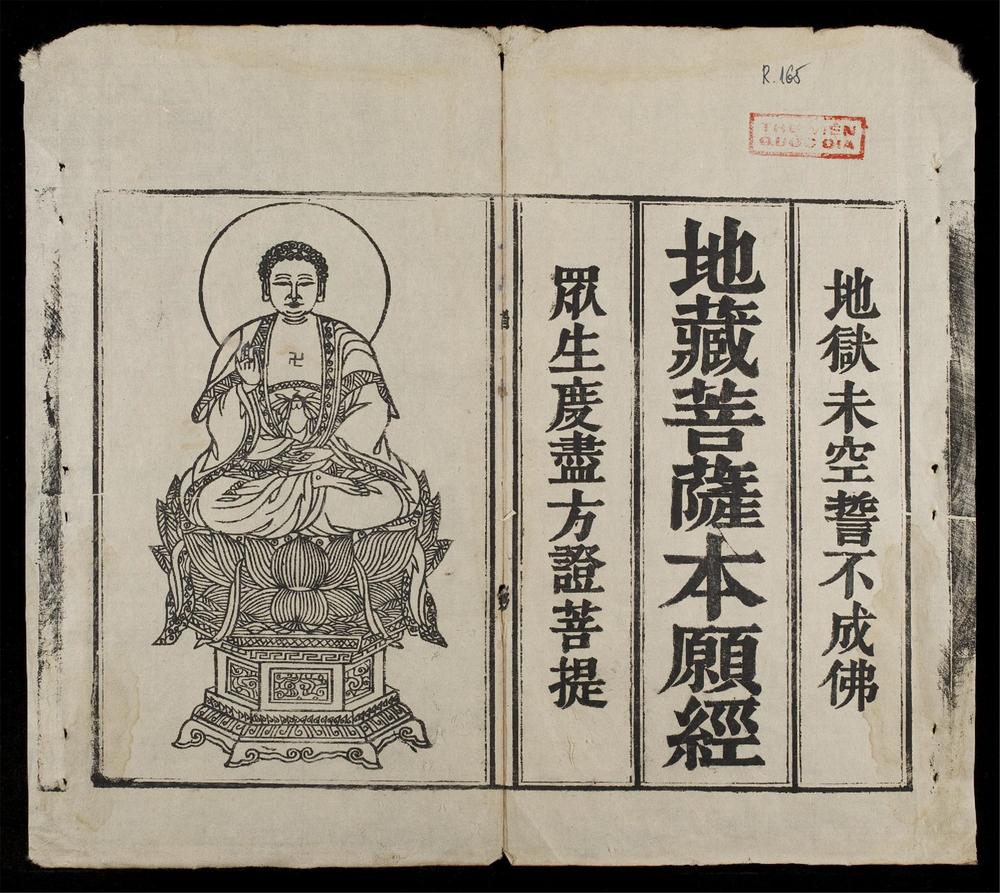 R.165
THƯ VIỆN
QUỐC GIA
地獄未空誓不成佛
地藏菩薩本願經
眾生度盡方證菩提
卍